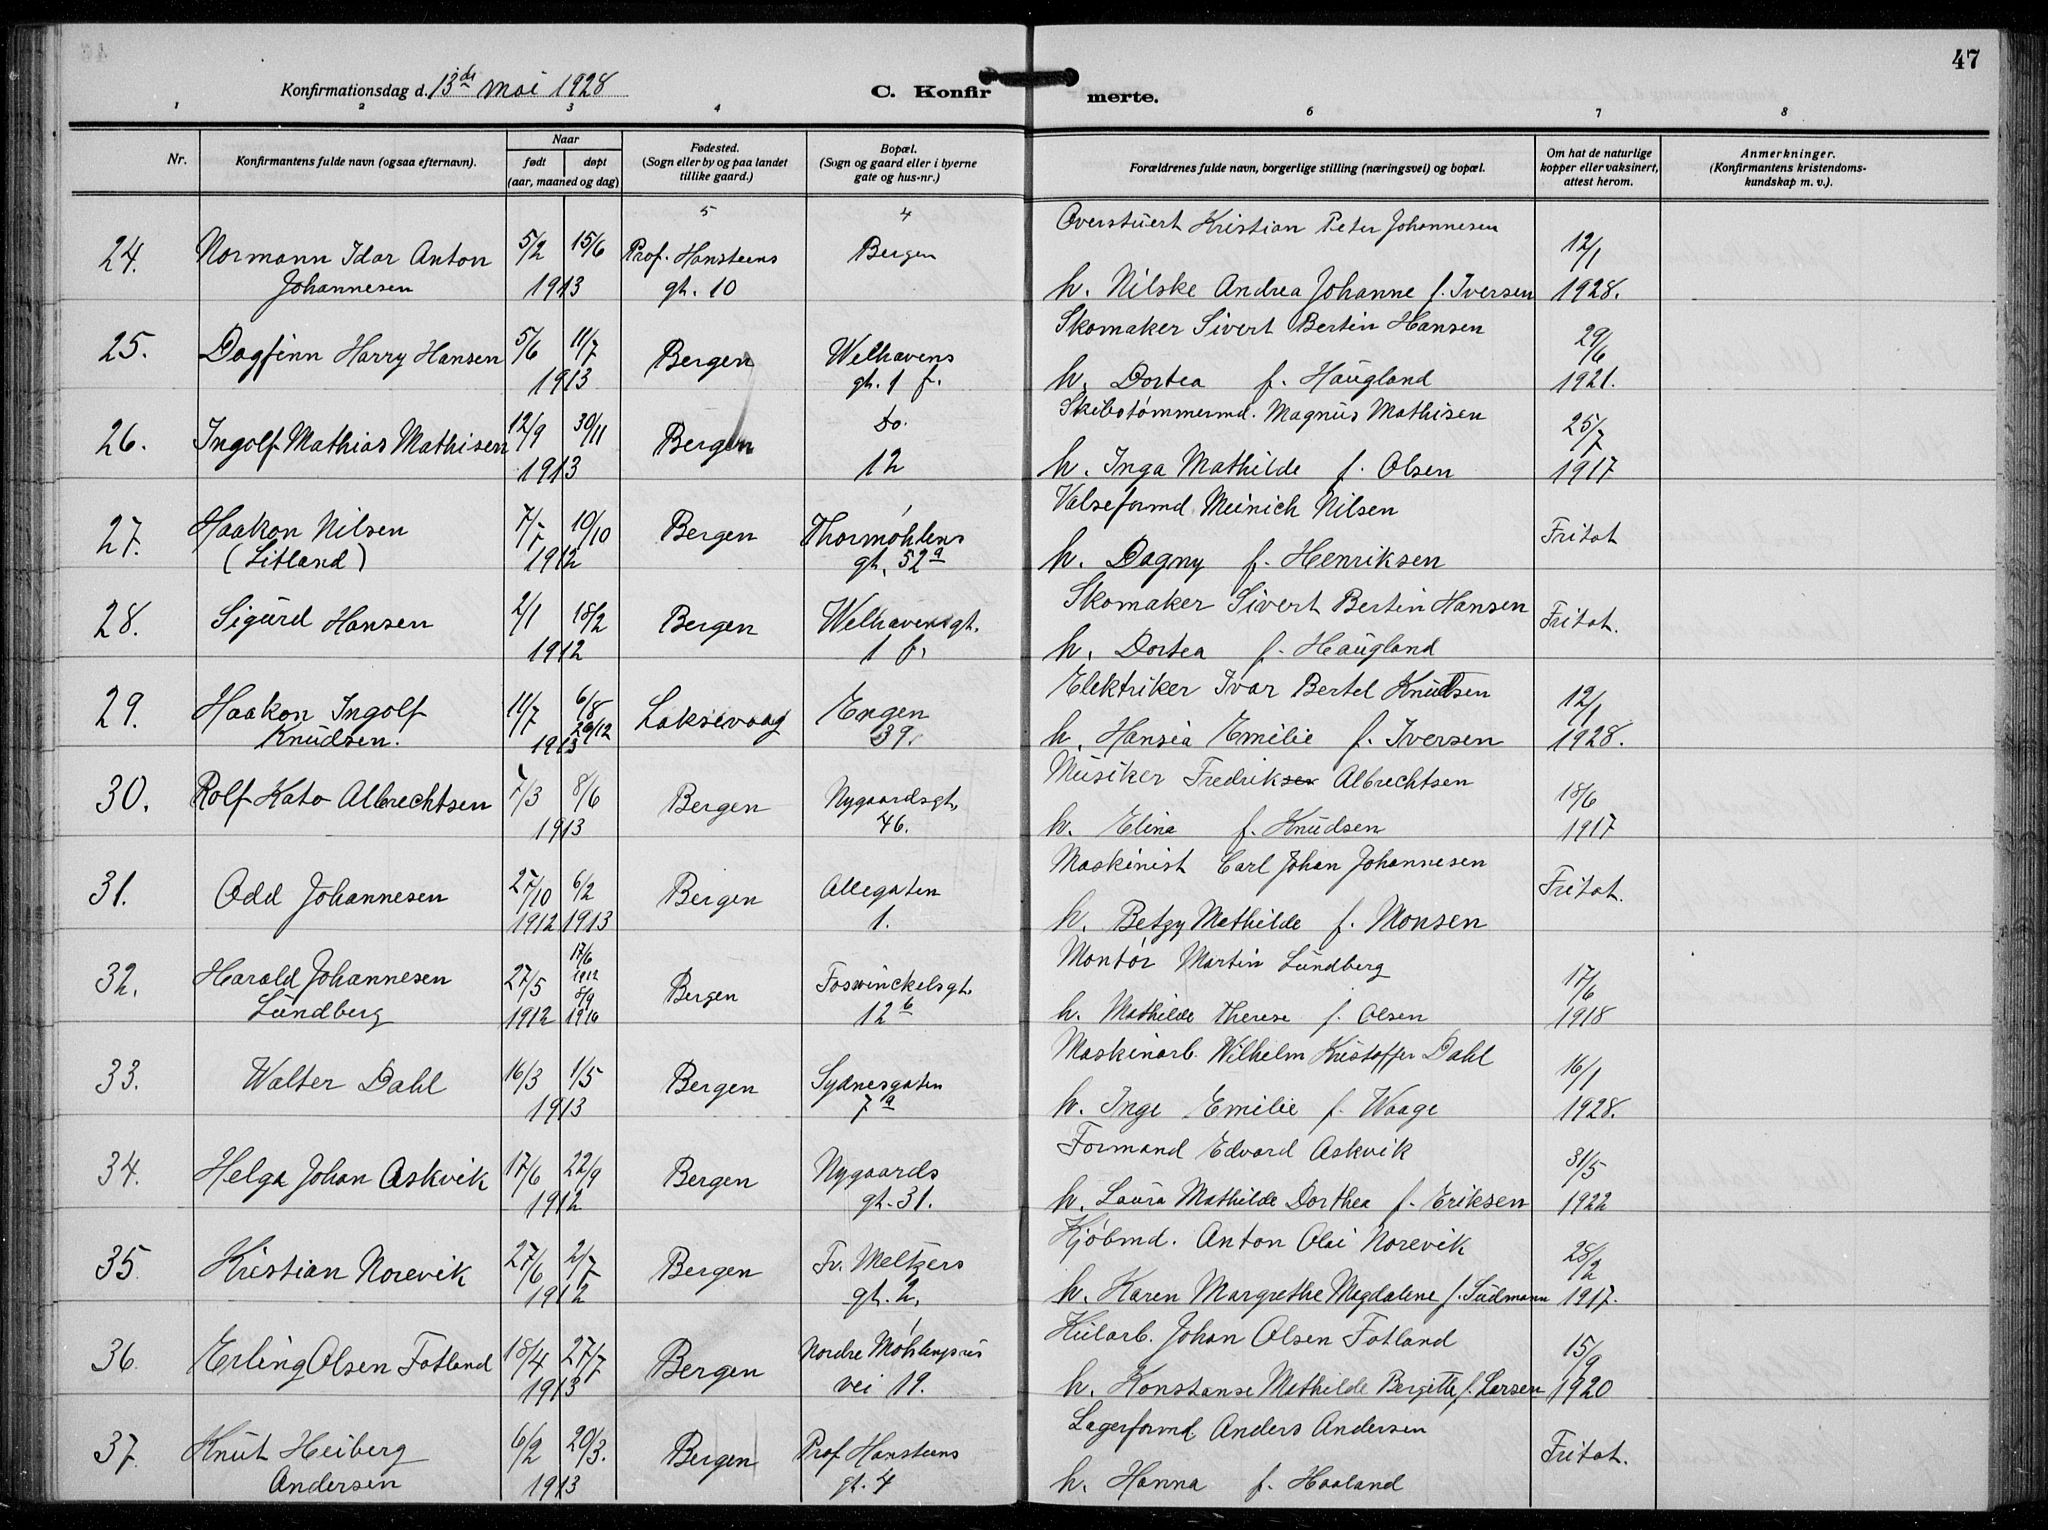 47
Konfirmationsdag d. 13de mai 1928
C. Konfirmerte.
1 2 3 4 5 6 7 8
Nr.
Konfirmantens fulde navn (ogsaa efternavn).
Naar
født døpt
(aar, maaned og dag)
Fødested.
(Sogn eller by og paa landet
tillike gaard.)
Bopæl.
(Sogn og gaard eller i byerne
gate og hus-nr.)
Forældrenes fulde navn, borgerlige stilling (næringsvei) og bopæl.
Om hat de naturlige
kopper eller vaksinert,
attest herom.
Anmerkninger.
(Konfirmantens kristendoms-
kundskap m. v.).
5 4
24. Normann Idar Anton 5/2 15/6 Prof. Hansteens Bergen Overstuert Kristian Peter Johannesen 12/1
Johannesen 1913 gt. 10 h. Nilske Andrea Johanne f. Iversen 1928.
25. Dagfinn Harry Hansen 5/6 11/7 Bergen Welhavens Skomaker Sivert Bertin Hansen 29/6
1913 gt. 1 f. h. Dortea f. Haugland 1921.
26. Ingolf Mathias Mathisen 12/9 30/11 Bergen Do. Skibstømmermd. Magnus Mathisen 25/7
1913 12 h. Inga Mathilde f. Olsen 1917
27. Haakon Nilsen 7/7 10/10 Bergen Thormøhlens Valseformd Meinich Nilsen Fritat
(Litland) 1912 gt. 52a h. Dagny f. Henriksen
28. Sigurd Hansen 2/1 18/2 Bergen Welhavensgt. Skomaker Sivert Bertin Hansen Fritat.
1912 1 f. h. Dortea f. Haugland
29. Haakon Ingolf 11/7 6/8 Laksevaag Engen Elektriker Ivar Bertel Knudsen 12/1
Knudsen. 1913 29/12 39. h. Hansia Emilie f. Iversen 1928.
30. Rolf Kato Albrechtsen 7/3 8/6 Bergen Nygaardsgt. Musiker Fredriksen Albrechtsen 18/6
1913 46. h. Elina f. Knudsen 1917
31. Odd Johannesen 27/10 6/2 Bergen Allegaten Maskinist Carl Johan Johannesen Fritat.
1912 1913 1. h. Betzy Mathilde f. Monsen
32. Harald Johannesen 27/5 17/6 1912 Bergen Fosvinckelsgt. Montør Martin Lundberg 17/6
Lundberg 1912 8/9 1916 12b h. Mathilde Therese f. Olsen 1918
33. Walter Dahl 16/3 1/5 Bergen Sydnesgaten Maskinarb. Wilhelm Kristoffer Dahl 16/1
1913 7a h. Inge Emilie f. Waage 1928.
34. Helge Johan Askvik 17/6 22/9 Bergen Nygaards Formand Edvard Askvik 31/5
1912 gt. 31. h. Laura Mathilde Dorthea f. Eriksen 1922
35 Kristian Norevik 27/6 2/7 Bergen Fr. Meltzers Kjøbmd. Anton Olai Norevik 28/2
1912 gt. 2. h. Karen Margrethe Magdalene f. Sudmann 1917.
36. Erling Olsen Fotland 18/4 27/7 Bergen Nordre Møhlenpris Hularb. Johan Olsen Fotland 15/9
1913 vei 19. h. Konstanse Mathilde Bergitte f. Larsen 1920
37. Knut Heiberg 6/2 20/3. Bergen Prof Hansteens Lagerformd Anders Andersen Fritat.
Andersen 1913 gt. 4 h. Hanna f. Haaland